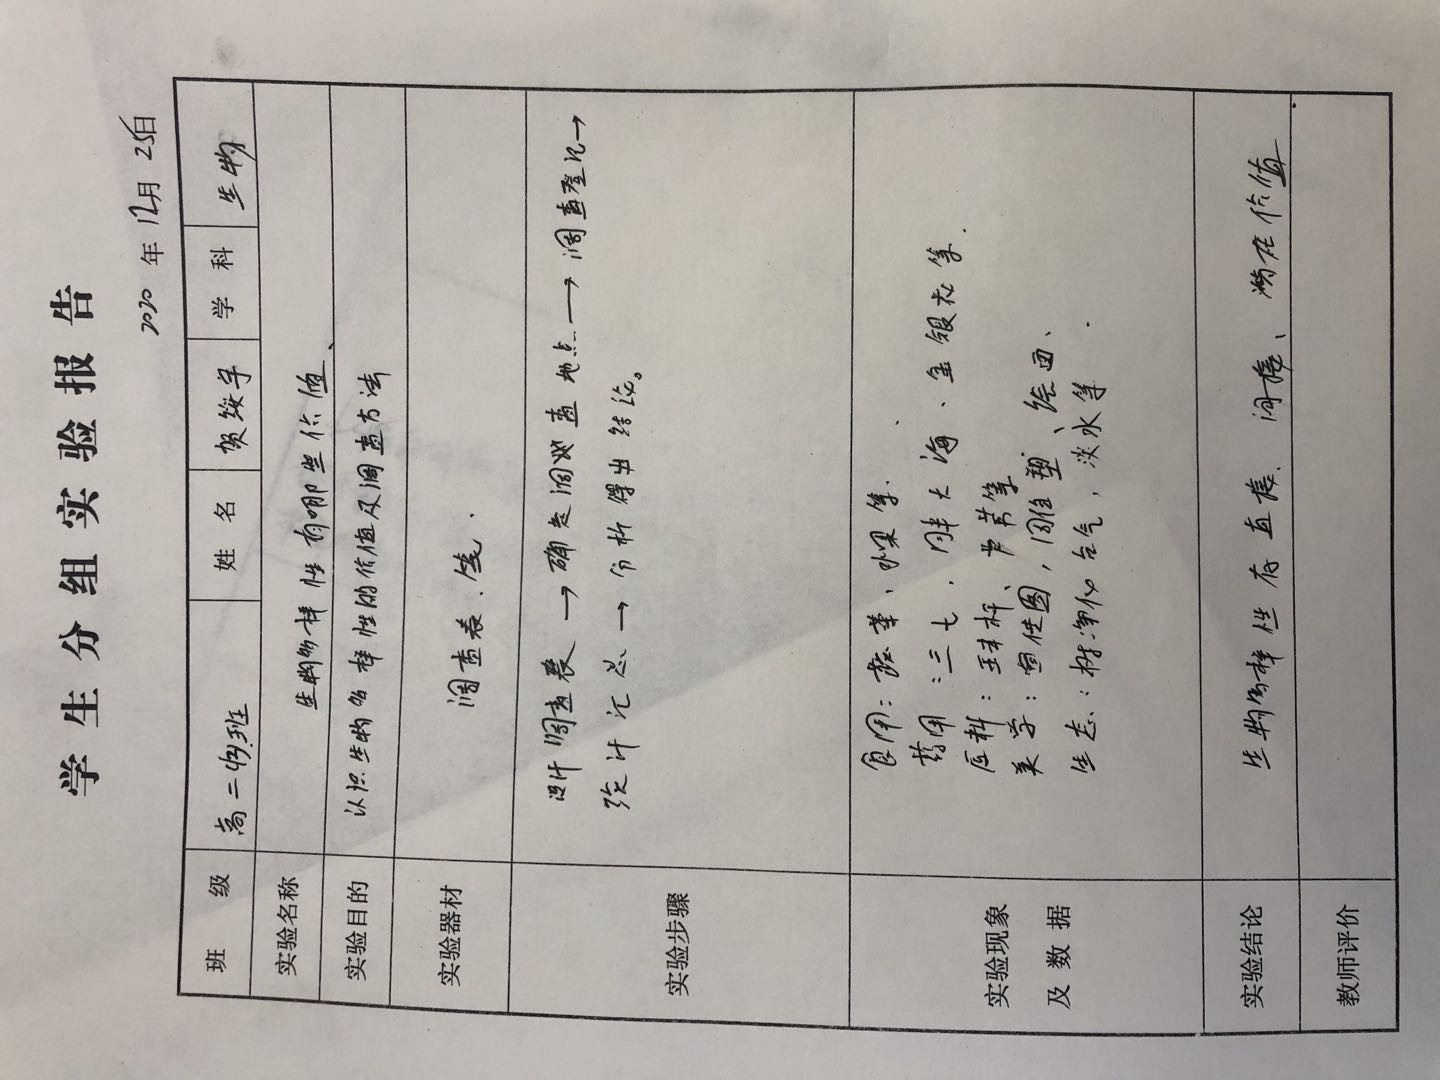 学生分组实验报告
2020年12月25日
班级 高二 班 姓名 贺绥宇 学科 生物
实验名称 生物多样性有哪些价值
实验目的 认识生物多样性的价值及调查方法
实验器材 调查表、笔.
实验步骤 设计调查表→确定调查地点→调查登记→
统计汇总→分析得出结论。
实验现象
及数据
食用：蔬菜、水果等.
药用：三七、胖大海、金银花等.
医料：玉米杆、芦苇等
美学：宣传图，雕塑、绘画、
生态：树净化空气，淡水等.
实验结论 生物多样性存直接、间接、潜在价值
教师评价